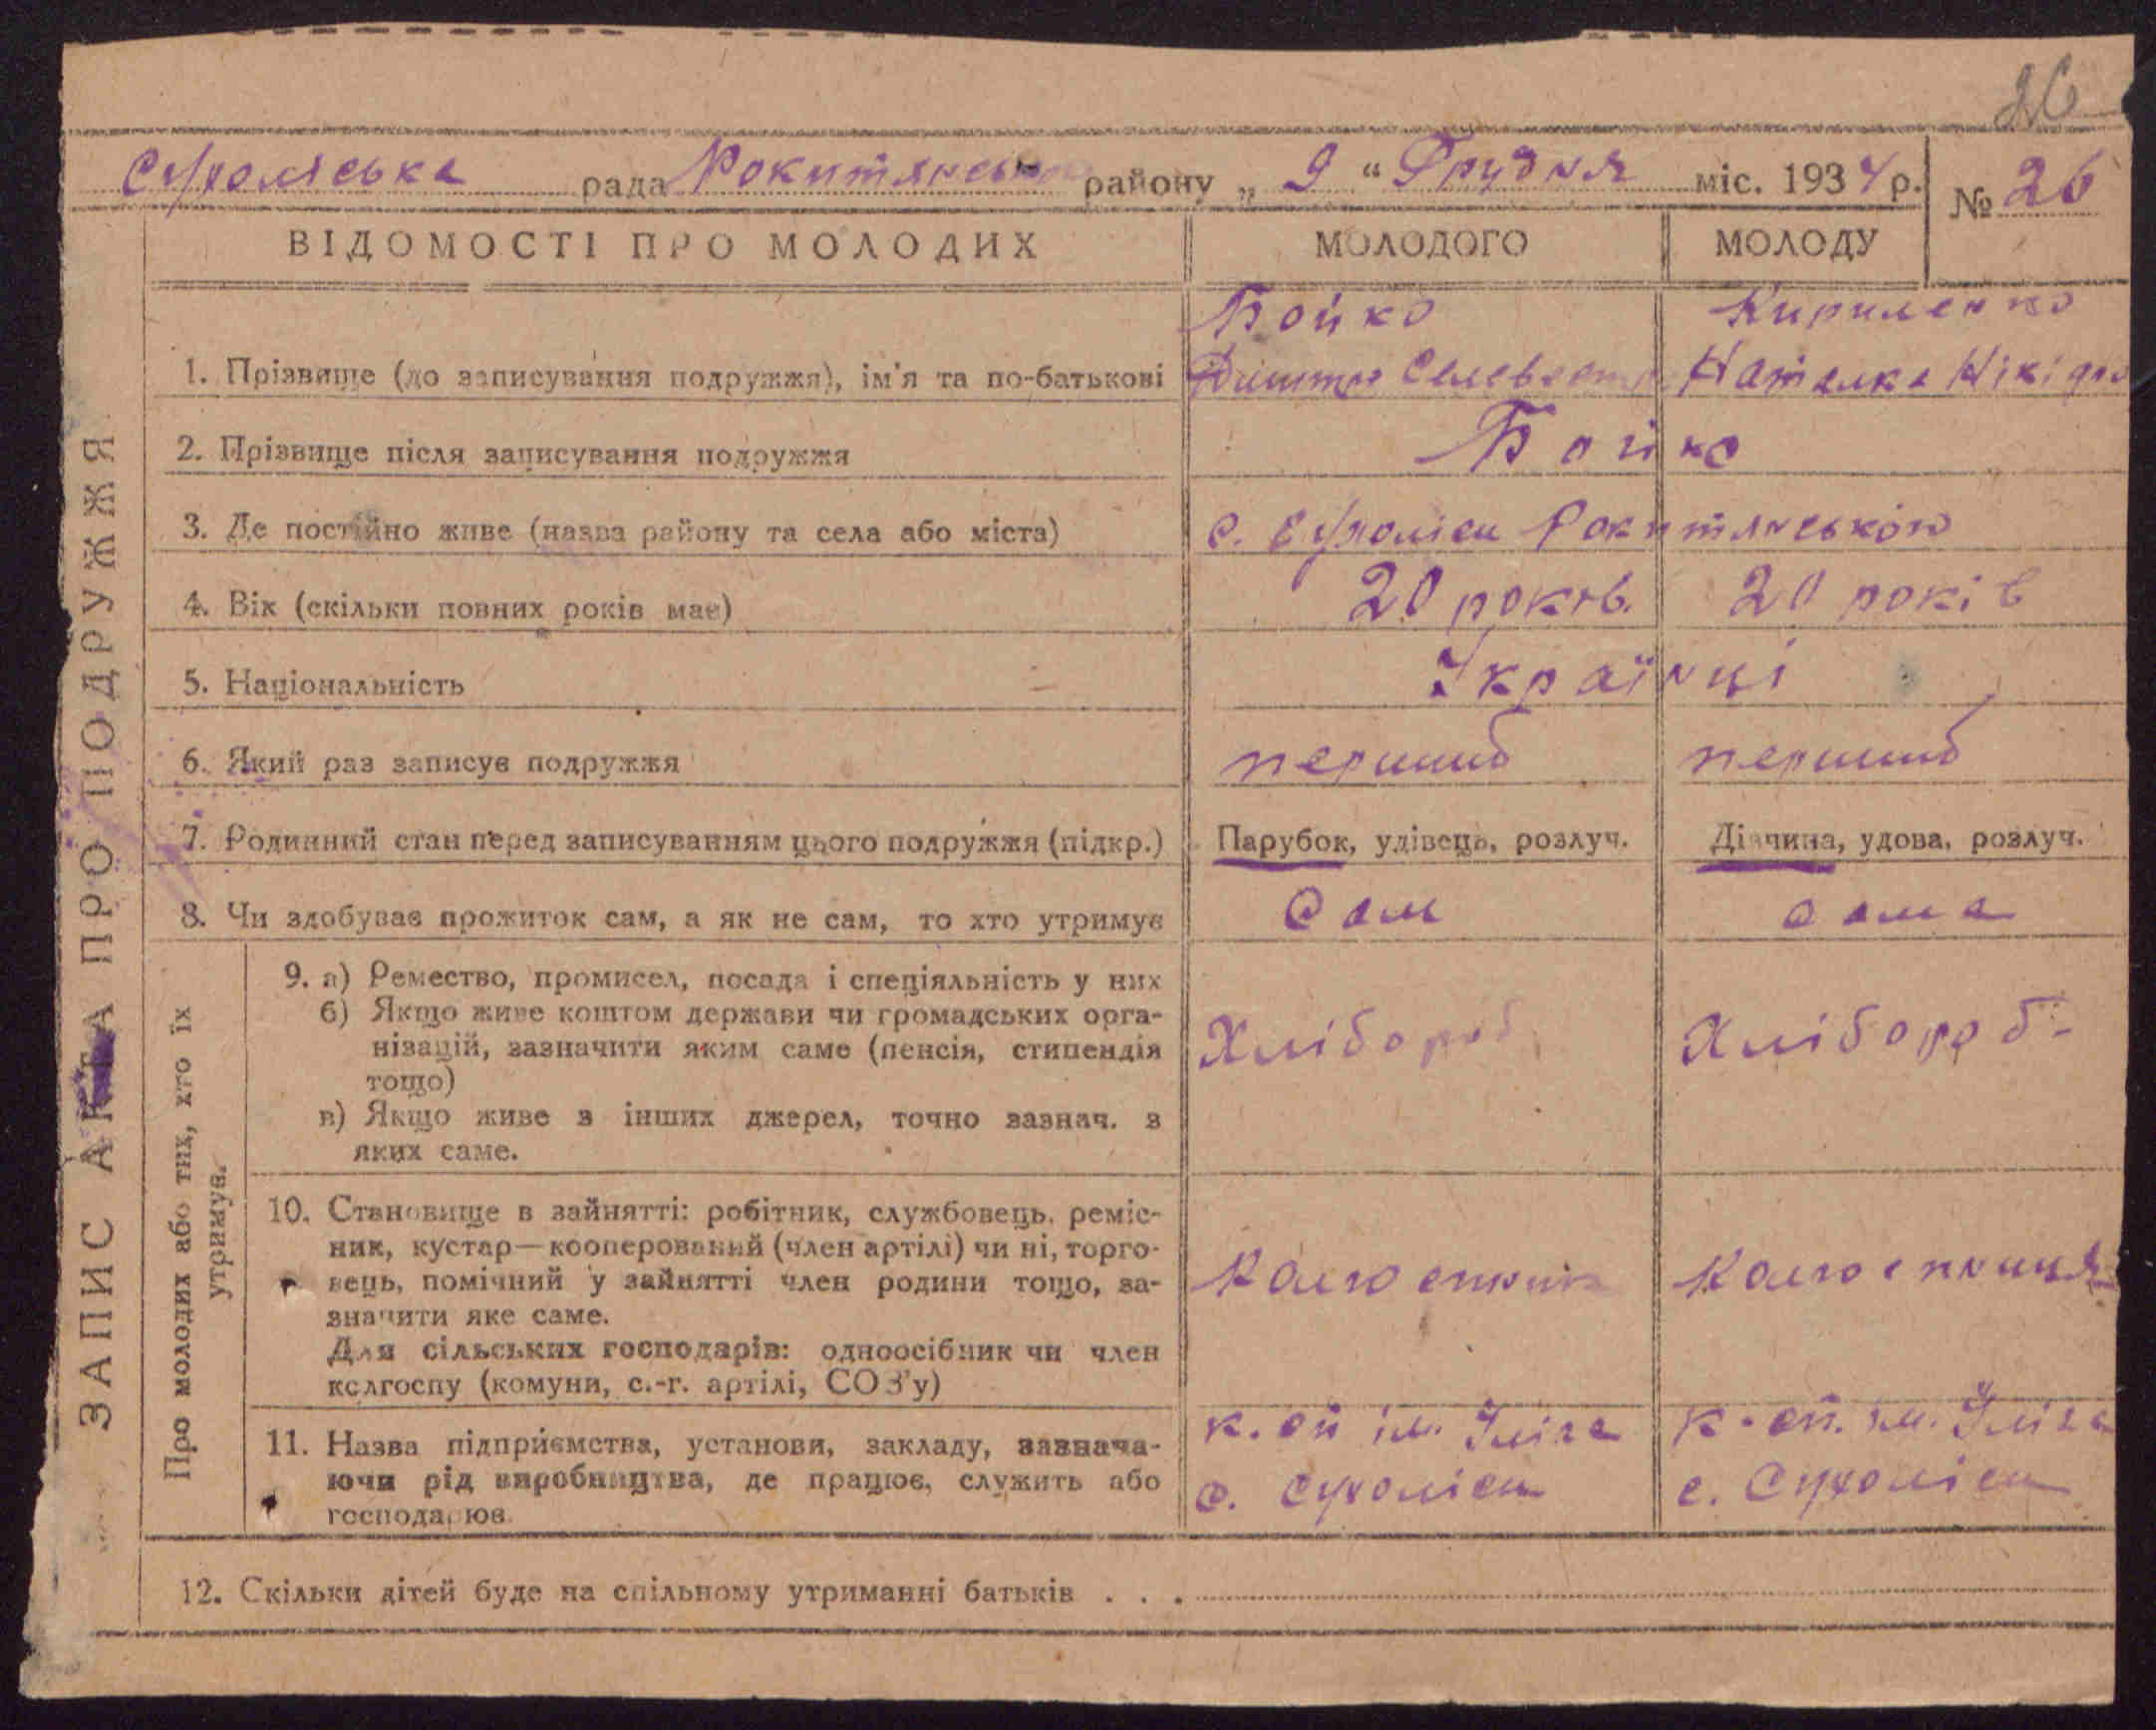 26
Сухоліська рада Рокитянсько району „ 9 “ Грудня міс. 1934 р. № 26
ВІДОМОСТІ ПРО МОЛОДИХ МОЛОДОГО МОЛОДУ
Бойко Кириленко
1. Прізвище (до записування подружжя), ім'я та по-батькові Наталка
2. Прізвище після записування подружжя Бойко
3. Де постійно живе (назва району та села або міста) с. Рокитянського
4. Вік (скільки повних років має) 20 років. 20 років
5. Національність Українці
6. Який раз записує подружжя перший перший
7. Родинний стан перед записуванням цього подружжя (підкр.) Парубок, удівець, розлуч. Дівчина, удова, розлуч.
8. Чи здобуває прожиток сам, а як не сам, то хто утримує Сам сама
9. а) Ремество, промисел, посада і спеціяльність у них
б) Якщо живе коштом держави чи громадських орга-
нізацій, зазначити яким саме (пенсія, стипендія Хлібороб Хлібороб
тощо)
в) Якщо живе з інших джерел, точно зазнач. з
яких саме.
10. Становище в зайнятті: робітник, службовець, реміс-
ник, кустар—кооперований (член артілі) чи ні, торго-
вець, помічний у зайнятті член родини тощо, за- Колгоспник Колгоспниця
значити яке саме.
Для сільських господарів: одноосібник чи член
колгоспу (комуни, с.-г. артілі, СОЗ'у)
11. Назва підприємства, установи, закладу, зазнача- ім. ім.
ючи рід виробництва, де працює, служить або с. Сухоліси с. Сухоліси
господарює
12. Скільки дітей буде на спільному утриманні батьків . . .
ЗАПИС АКТА ПРО ПОДРУЖЖЯ
Про молодих або тих, хто їх
утримує.